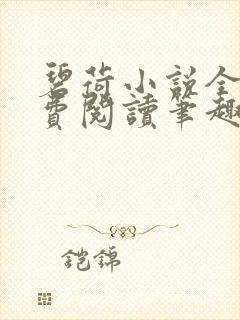 碧荷小说全
费阅读笔趣
铠锦